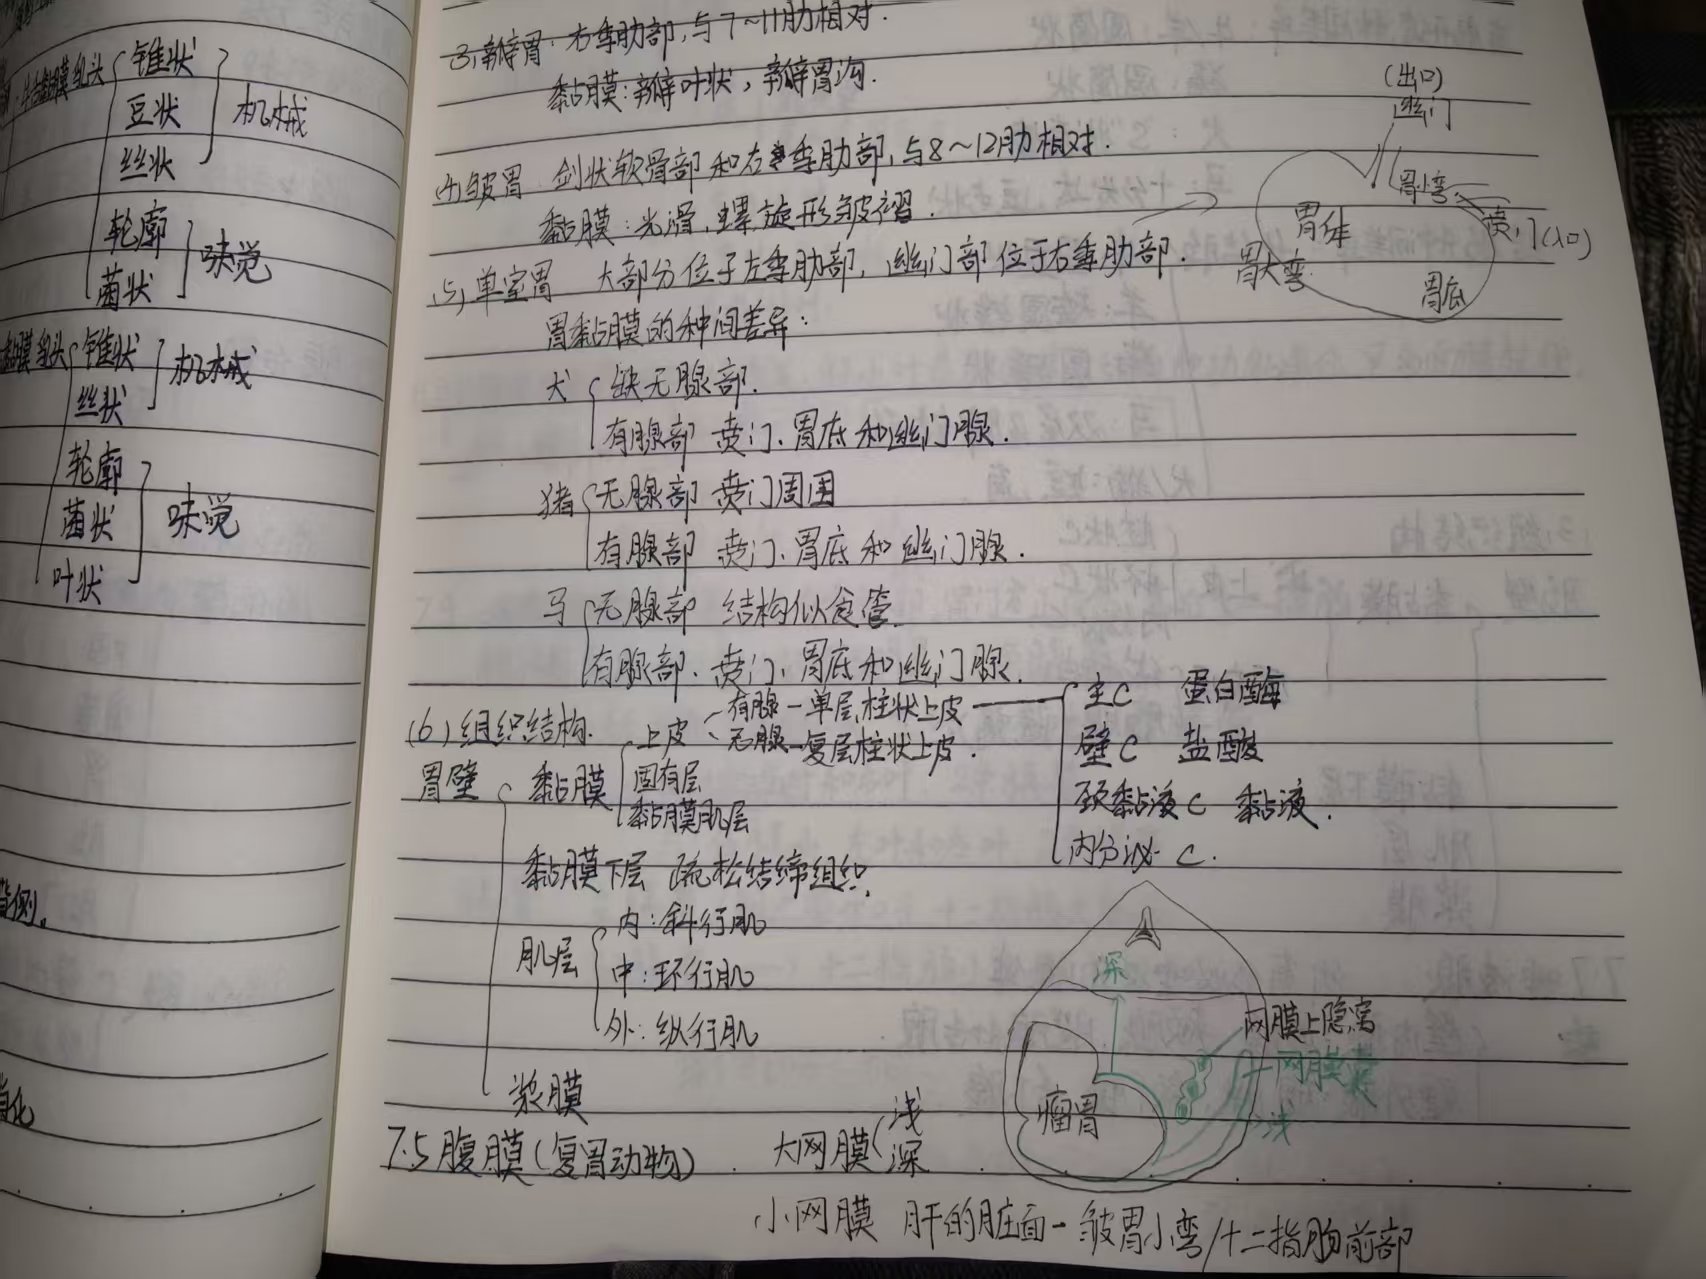 黏膜乳头 锥状
豆状
丝状
机械
轮廓
菌状
味觉
黏膜乳头 锥状
丝状
机械
轮廓
菌状
叶状
味觉
侧。
化
3,瓣胃:右季肋部,与7~11肋相对.
黏膜:瓣叶状,瓣胃沟.
(4)皱胃 剑状软骨部和右季肋部,与8~12肋相对.
黏膜:光滑,螺旋形皱褶.
(5)单室胃 大部分位于左季肋部,幽门部位于右季肋部.
(出口)
幽门
胃小弯
贲门(入口)
胃体
胃大弯
胃底
胃黏膜的种间差异:
犬 缺无腺部.
有腺部 贲门、胃底和幽门腺.
猪 无腺部 贲门周围
有腺部 贲门、胃底和幽门腺.
马 无腺部 结构似食管.
有腺部. 贲门、胃底和幽门腺.
(6)组织结构.
胃壁 黏膜 上皮 有腺-单层柱状上皮
无腺-复层柱状上皮.
固有层
黏膜肌层
主C 蛋白酶
壁C 盐酸
颈黏液C 黏液.
内分泌C.
黏膜下层 疏松结缔组织.
肌层 内:斜行肌
中:环行肌
外:纵行肌
浆膜
深
网膜上隐窝
网膜囊
浅
瘤胃
7.5腹膜(复胃动物). 大网膜 浅
深
小网膜 肝的脏面-皱胃小弯/十二指肠前部